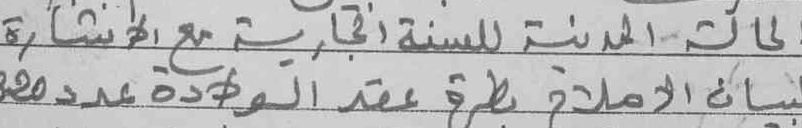 لحالته المدنية للسنة الجارية مع الإشارة
لبيان الاصلاح بطرة عقد الولادة عدد 320